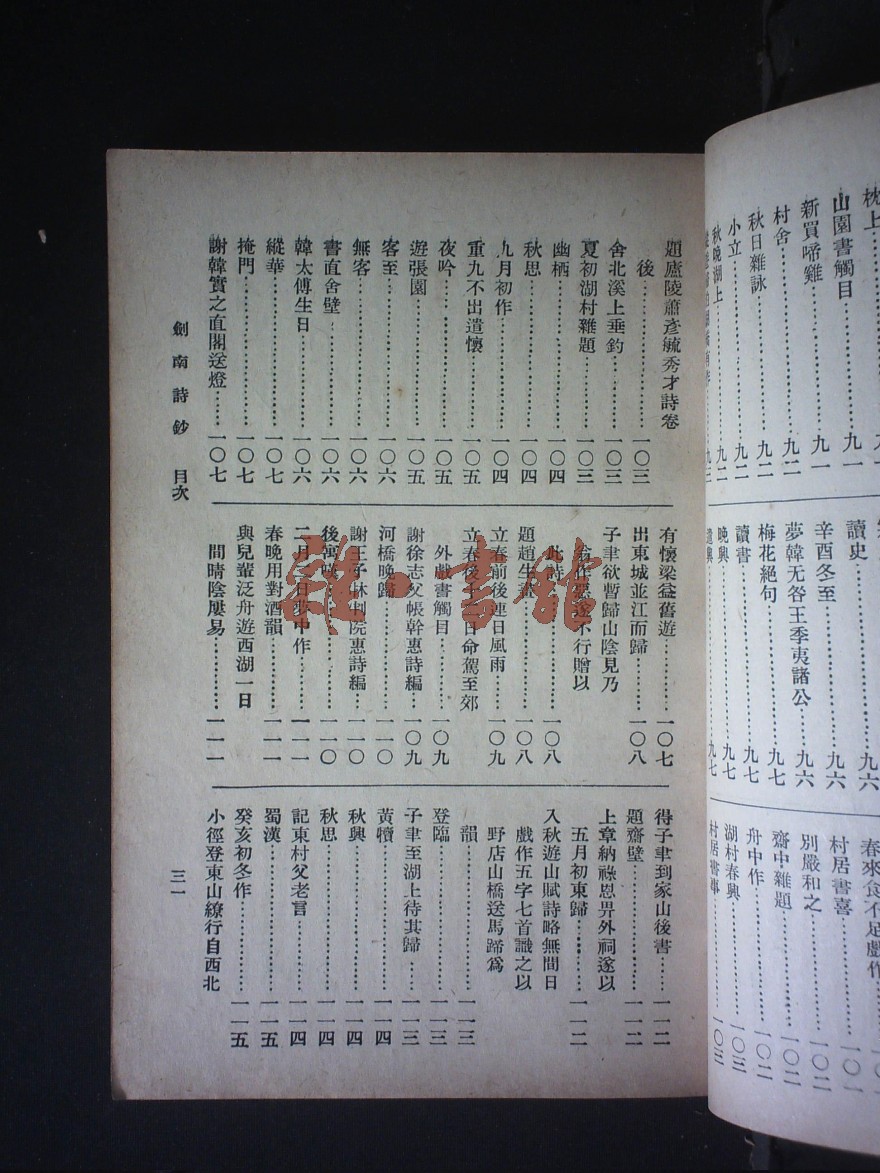 枕上
山園書觸目
九一
新買啼雞
九一
村舍
九二
秋日雜詠
九二
小立
九二
秋晚湖上
九二
讀史
九六
辛酉冬至
九六
夢韓无咎王季夷諸公
九六
梅花絕句
九七
讀書
九七
晚興
九七
遣興
九七
春來食不足戲作
村居書喜
一〇一
別嚴和之
一〇二
齋中雜題
一〇二
舟中作
一〇二
湖村春興
一〇三
村居書事
一〇三
題廬陵蕭彥毓秀才詩卷
後
一〇三
舍北溪上垂釣
一〇三
夏初湖村雜題
一〇三
幽栖
一〇四
秋思
一〇四
九月初作
一〇四
重九不出遣懷
一〇五
夜吟
一〇五
遊張園
一〇五
客至
一〇六
無客
一〇六
書直舍壁
一〇六
韓太傅生日
一〇六
縱華
一〇七
掩門
一〇七
謝韓實之直閣送燈
一〇七
有懷梁益舊遊
一〇七
出東城並江而歸
一〇八
子聿欲暫歸山陰見乃
翁作惡遂不行贈以
此詩
一〇八
題趙生畫
一〇八
立春前後連日風雨
一〇九
立春後十二日命駕至郊
外戲書觸目
一〇九
謝徐志父帳幹惠詩編
一〇九
河橋晚歸
一一〇
謝王子林判院惠詩編
一一〇
後寓歎
一一〇
二月一日夢中作
一一一
春晚用對酒韻
一一一
與兒輩泛舟遊西湖一日
間晴陰屢易
一一一
得子聿到家山後書
一一二
題齋壁
一一二
上章納祿恩畀外祠遂以
五月初東歸
一一二
入秋遊山賦詩略無間日
戲作五字七首識之以
野店山橋送馬蹄爲
韻
一一三
登臨
一一三
子聿至湖上待其歸
一一三
黃犢
一一四
秋興
一一四
秋思
一一四
記東村父老言
一一四
蜀漢
一一五
癸亥初冬作
一一五
小徑登東山繚行自西北
劍南詩鈔 目次
三一
雜·書館